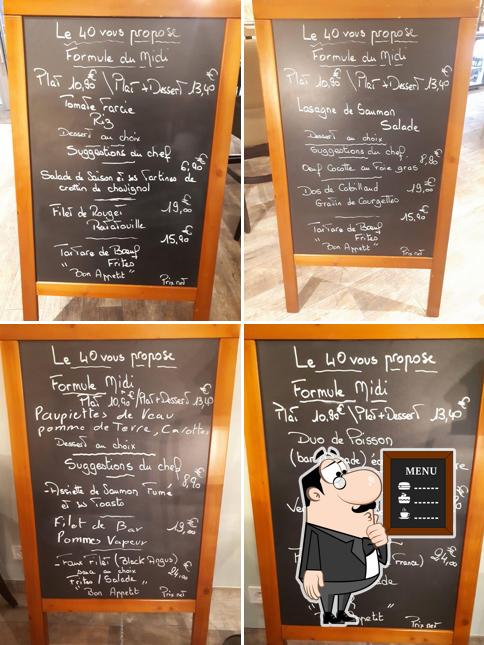 Le 40 vous propose
Formule du Midi
Plat 10,90€ \ Plat + Dessert 13,40€
Tomate Farcie
Riz
Dessert au choix
Suggestions du chef
6,90€
Salade de Saison et ses Tartines de
crottin de chavignol
Filet de Rouget 19,00€
Ratatouille
15,90€
Tartare de Bœuf
Frites
"Bon Appetit"
Prix net
Le 40 vous propose
Formule du Midi
Plat 10,90€ \ Plat + Dessert 13,40€
Lasagne de Saumon
Salade
Dessert au choix
Suggestions du chef
8,90€
Oeuf Cocotte au Foie gras
Dos de Cabillaud 19,00€
Gratin de Courgettes
15,90€
Tartare de Bœuf
Frites
"Bon Appetit"
Prix net
Le 40 vous propose
Formule Midi
Plat 10,90€ / Plat + Dessert 13,40€
Paupiettes de Veau
pomme de Terre, Carottes
Dessert au choix
Suggestions du chef
8,90€
- Assiette de Saumon Fumé
et ses Toasts
- Filet de Bar 19,00€
Pommes Vapeur
- Faux Filet (Black Angus)
sauce au choix 24,00€
Frites / Salade
"Bon Appetit"
Prix net
Le 40 vous propose
Formule Midi
Plat 10,90€ \ Plat + Dessert 13,40€
Duo de Poisson
MENU
France)
Prix net